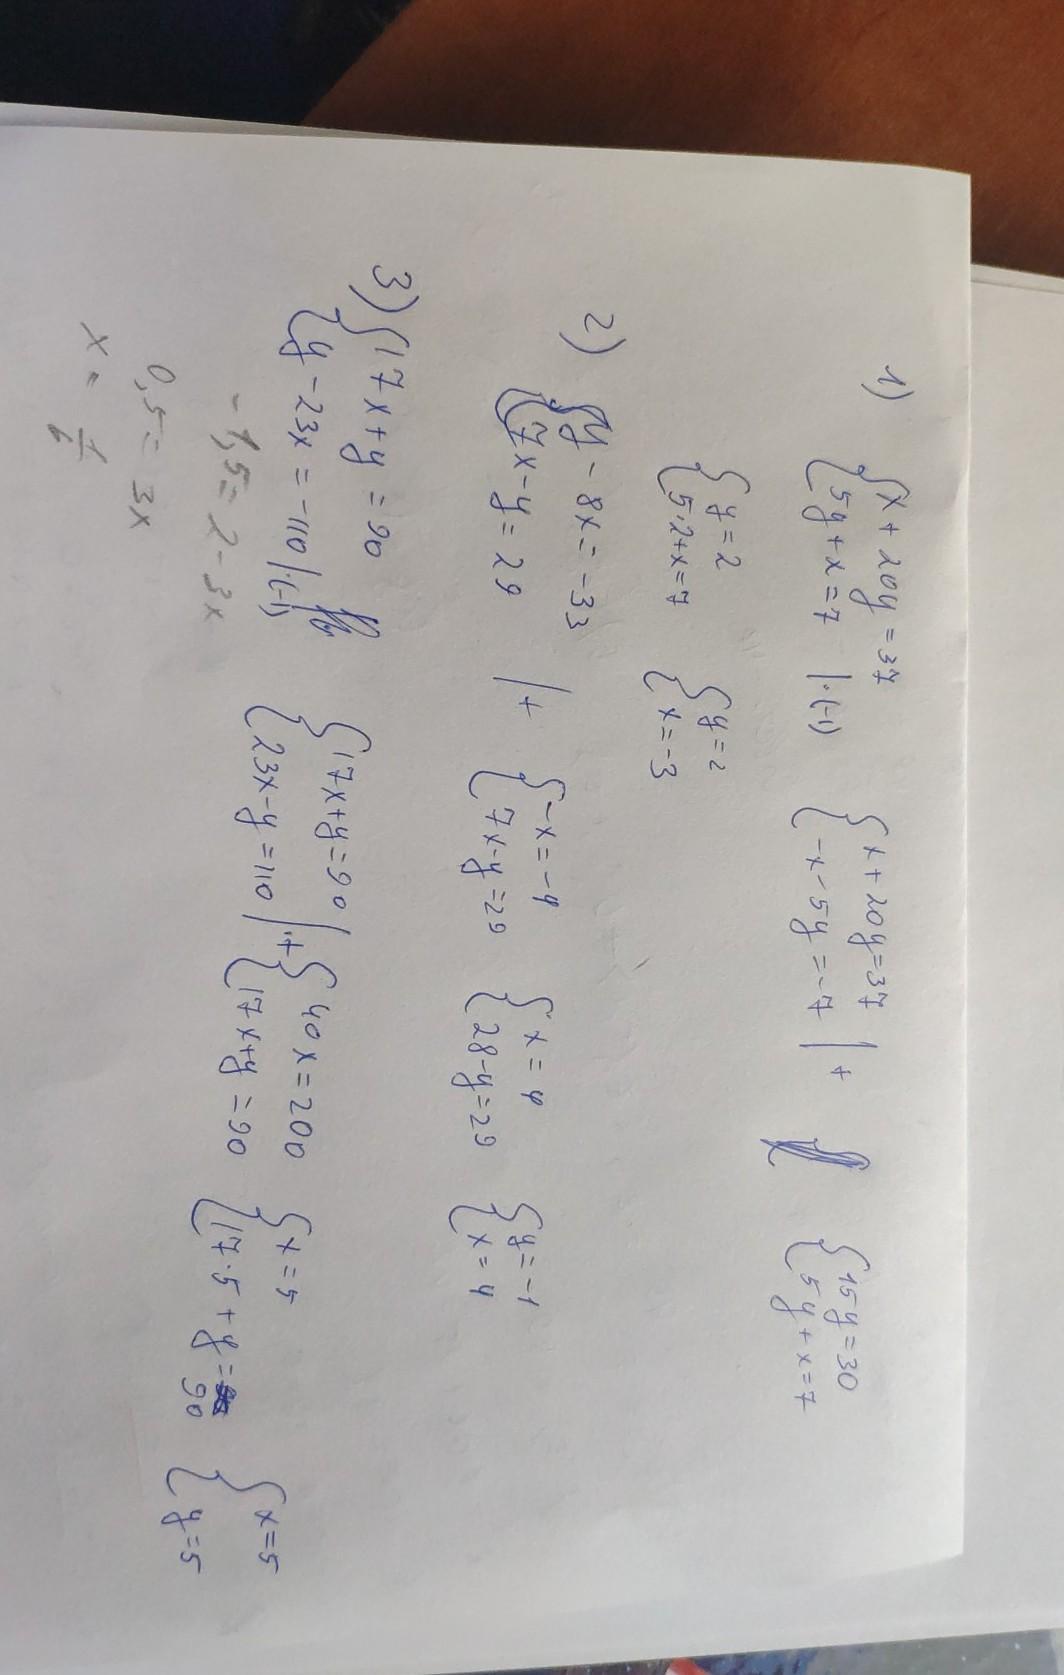 1) { x + 20y = 37
{ 5y + x = 7 | ·(-1)
{ x + 20y = 37
{ -x - 5y = -7 | +
{ 15y = 30
{ 5y + x = 7
{ y = 2
{ 5·2 + x = 7
{ y = 2
{ x = -3
2) { y - 8x = -33
{ 7x - y = 29 | +
{ -x = -4
{ 7x - y = 29
{ x = 4
{ 28 - y = 29
{ y = -1
{ x = 4
3) { 17x + y = 90
{ y - 23x = -110 | ·(-1)
{ 17x + y = 90
{ 23x - y = 110 | +
{ 40x = 200
{ 17x + y = 90
{ x = 5
{ 17·5 + y = 90
{ x = 5
{ y = 5
-1,5 = 2 - 3x
0,5 = 3x
x =